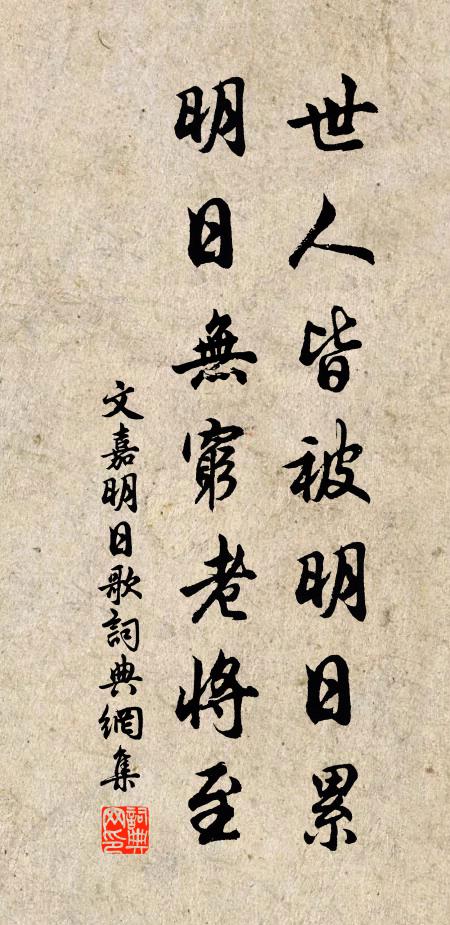 世人皆被明日累
明日無窮老將至
文嘉明日歌詞典網集
詞典網印